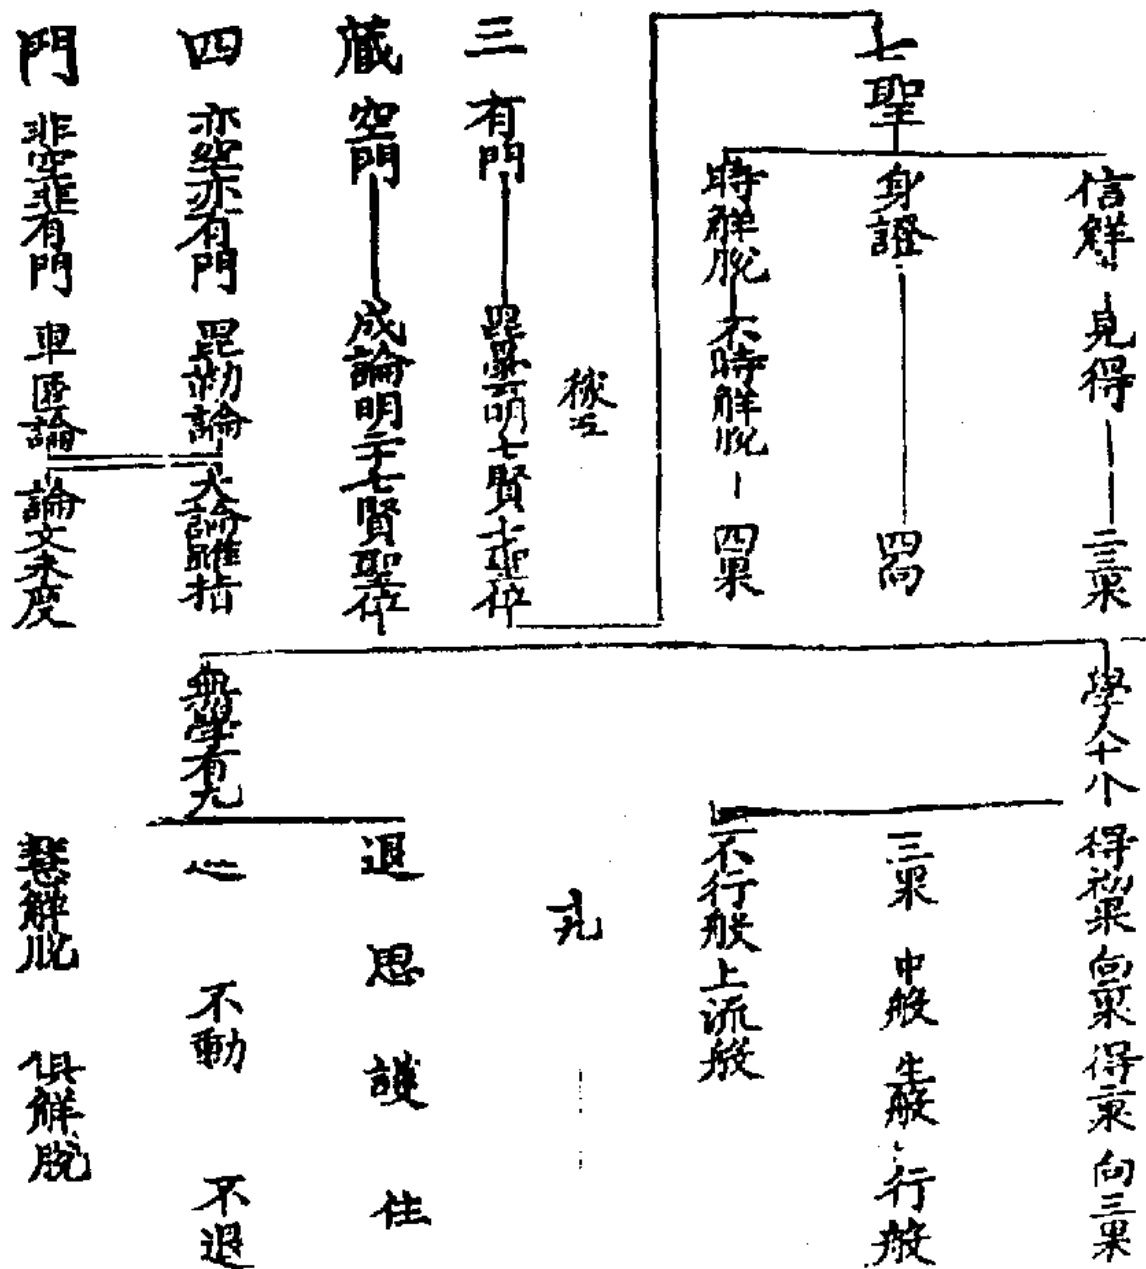 七聖
信解 見得 二三果
身證 四向
時解脫 不時解脫 四果
三 有門 毘曇明七賢七聖位
藏 空門 成論明二十七賢聖位
四 亦空亦有門 毘勒論 大論雖指
門 非空非有門 車匿論 論文未度
學人十八 得初果 向二果 得二果 向三果
三果 中般 生般 行般
不行般 上流般
無學有九
退 思 護 住
不動 不退
慧解脫 俱解脫